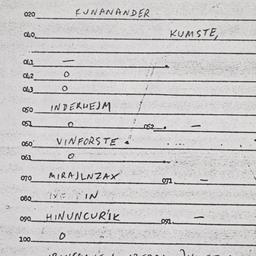 020 KUNANANDER
040 KUMSTE,
041 —
042 O
043 O
050 INDERHEJM
051 O 052 —
060 VINFORSTE
061 O
070 MIRAJLNZAX 071 —
080 IN
090 HINUNCURIK 091 —
100 O